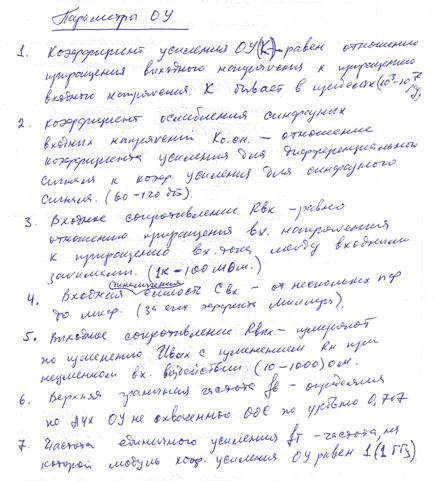 Параметры ОУ
1. Коэффициент усиления ОУ (К) – равен отношению
приращения выходного напряжения к приращению
входного напряжения. К бывает в пределах (10³–10⁷
2. Коэффициент ослабления синфазных
входных напряжений Ко.сн. – отношение
коэффициента усиления для дифференциального
сигнала к коэф. усиления для синфазного
сигнала. (60–120 дБ)
3. Входное сопротивление Rвх – равно
отношению приращения вх. напряжения
к приращению вх. тока между входными
зажимами. (1к–100 МОм.)
4. Входная ёмкость Cвх – от нескольких пф.
до мкф. (за счет эффекта Миллера).
5. Выходное сопротивление Rвых – измеряют
по изменению Uвых с изменением Rн при
неизменном вх. воздействии. (10–1000) Ом.
6. Верхняя граничная частота fв – определяя
по АЧХ ОУ не охваченного ООС по уровню 0,707
7. Частота единичного усиления fт – частота, на
которой модуль коэф. усиления ОУ равен 1 (1 ГГц).